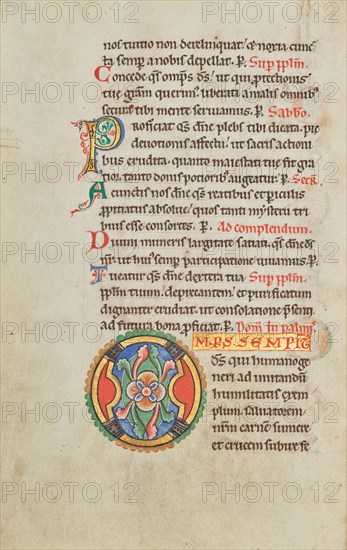 nos tuitio non derelinquat, & noxia cunc
ta semp a nobis depellat. P. Sup pplm.
Concede qs omps ds, ut qui ptectionis
tuę gram querim, liberati a malis omnib;
secura tibi mente seruiam. P. Sabbo.
Proficiat qs dne plebs tibi dicata, pię
deuotionis affectu, ut sacris actioni
bus erudita, quanto maiestati tuę fit gra
tior, tanto donis potiorib; augeatur. P. Secr.
A cunctis nos dne qs reatibus et piculis
ppitiatus absolue, quos tanti mysterii tri
buis esse consortes. P. Ad complendum.
Diuini muneris largitate satiati, qs dne ds
nr, ut hui semp participatione uiuam. P.
Tueatur qs dne dextera tua Sup pplm.
pplm tuum deprecantem, et purificatum
dignanter erudiat, ut consolatione psenti
ad futura bona pficiat. P. Dom in palmis
OMPS. SEMPIT
ds qui humano ge
neri ad imitandu
humilitatis exem
plum, saluatorem
nrm carne sumere
et crucem subire fe
PHOTO 12